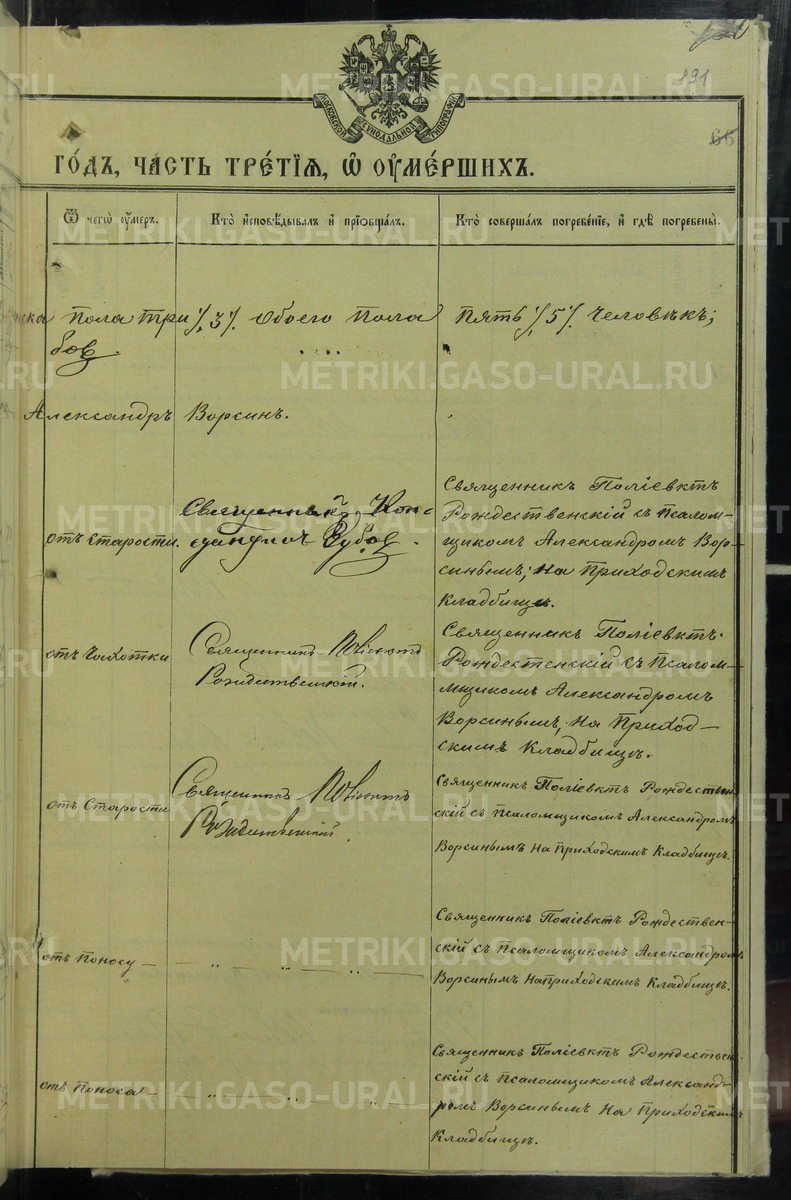 891
66
МОСКОВСКОЙ СѴНОДАЛЬНОЙ ТИПОГРАФІИ
ГО́ДЪ, ЧА́СТЬ ТРЕ́ТІѦ, Ѡ҆ ОУ҆МЕ́РШИХЪ.
Ѿ чегѡ̀ оу҆́меръ.
Кто̀ и҆сповѣ́дывалъ и҆ прїѡбща́лъ.
Кто̀ соверша́лъ погребе́нїе, и҆ гдѣ̀ погребены̀.
ска пола три %3% обоего пола пять %5% человѣкъ;
бовъ
Александръ Ворсинъ.
отъ старости.
Священникъ
Зубовъ.
Священникъ Поліевктъ
Рождественскій съ псалом-
щикомъ Александромъ Вор-
синымъ; на Приходскимъ
кладбищѣ.
отъ чахотки
Священникъ Поліевктъ
Рождественскій.
Священникъ Поліевктъ
Рождестенскій съ псалом-
мщикомъ Александромъ
Ворсинымъ, на Приход-
скимъ кладбищѣ.
отъ Старости
Священникъ Поліевктъ
Рождественскій
Священникъ Поліевктъ Рождествен-
скій съ Псаломщикомъ Александромъ
Ворсинымъ на Приходскимъ кладбищѣ.
отъ поносу — „ „ „
Священникъ Поліевктъ Рождествен-
скій съ Псаломщикомъ Александромъ
Ворсинымъ на приходскимъ кладбищѣ.
отъ поноса — „ „ „
Священникъ Поліевктъ Рождествен-
скій съ псаломщикомъ Александ-
ромъ Ворсинымъ на Приходскимъ
кладбищѣ.
METRIKI.GASO-URAL.RU